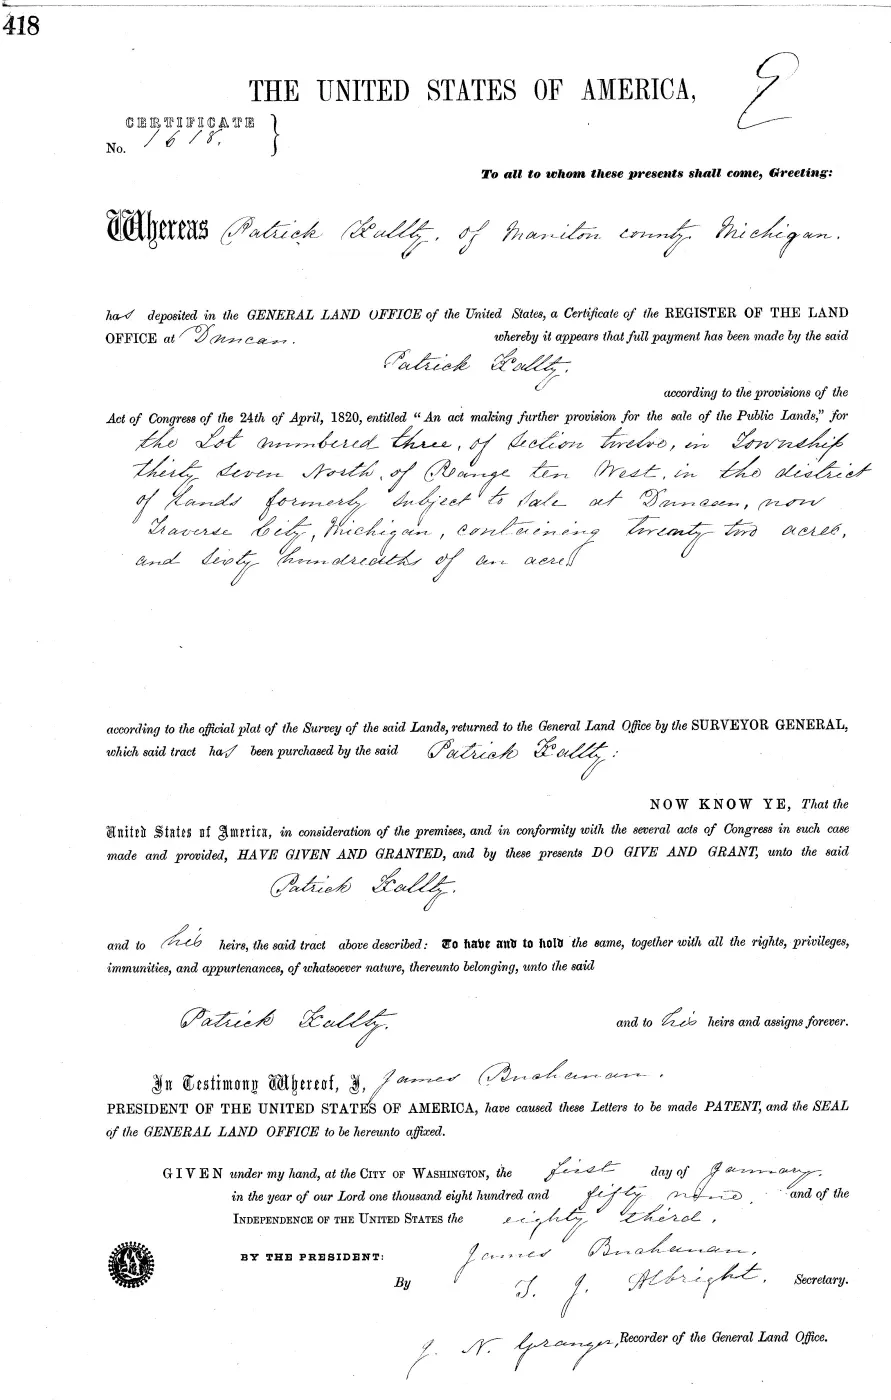 418
THE UNITED STATES OF AMERICA,
CERTIFICATE
No. 1618. }
To all to whom these presents shall come, Greeting:
Whereas Patrick Kallty, of Maniton county Michigan.
has deposited in the GENERAL LAND OFFICE of the United States, a Certificate of the REGISTER OF THE LAND
OFFICE at Duncan. whereby it appears that full payment has been made by the said
Patrick Kallty.
according to the provisions of the
Act of Congress of the 24th of April, 1820, entitled "An act making further provision for the sale of the Public Lands," for
the Lot numbered three, of Section twelve, in Township
thirty seven North, of Range ten West, in the district
of Lands formerly subject to sale at Duncan, now
Traverse City, Michigan, containing twenty two acres,
and sixty hundredths of an acre
according to the official plat of the Survey of the said Lands, returned to the General Land Office by the SURVEYOR GENERAL,
which said tract has been purchased by the said Patrick Kallty:
NOW KNOW YE, That the
United States of America, in consideration of the premises, and in conformity with the several acts of Congress in such case
made and provided, HAVE GIVEN AND GRANTED, and by these presents DO GIVE AND GRANT, unto the said
Patrick Kallty.
and to his heirs, the said tract above described: To have and to hold the same, together with all the rights, privileges,
immunities, and appurtenances, of whatsoever nature, thereunto belonging, unto the said
Patrick Kallty. and to his heirs and assigns forever.
In Testimony Whereof, I, James Buchanan.
PRESIDENT OF THE UNITED STATES OF AMERICA, have caused these Letters to be made PATENT, and the SEAL
of the GENERAL LAND OFFICE to be hereunto affixed.
GIVEN under my hand, at the CITY OF WASHINGTON, the first day of January
in the year of our Lord one thousand eight hundred and fifty nine and of the
INDEPENDENCE OF THE UNITED STATES the eighty third.
BY THE PRESIDENT: James Buchanan.
By T. J. Albright, Secretary.
J. N. Granger, Recorder of the General Land Office.